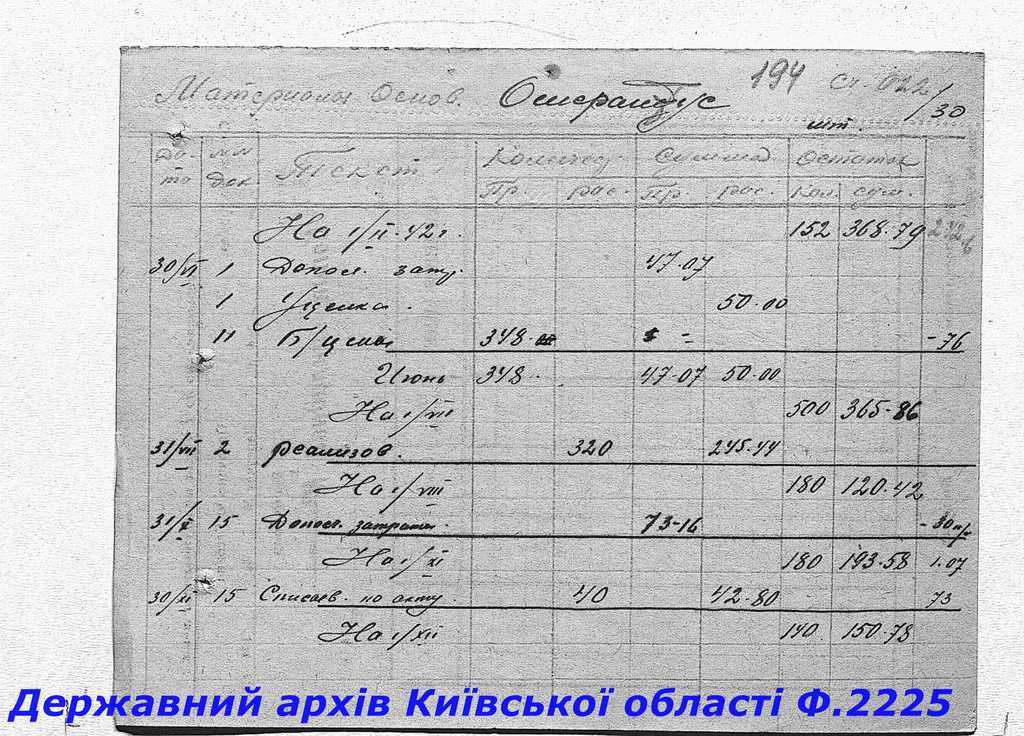 194 Сч. 022/30
Материалы Основ. Осмерантус
шт.
Дата №№ док. Текст Количед. Сумма Остаток
Пр. рас. Пр. рас. Кол. сум.
На 1/II-42 г. 152 368-79
30/VI 1 Допол. затр. 47-07
1 Уценка. 50-00
11 Б/цены 348 - = -76
Июнь 348 - 47-07 50-00
На 1/VII 500 365-86
31/VII 2 реализов. 320 245-44
На 1/VIII 180 120-42
31/X 15 Допол. затраты. 73-16
На 1/XI 180 193-58 1.07
30/XI 15 Списыв. по акту. 40 42-80 73
На 1/XII 140 150-78
Державний архів Київської області Ф.2225